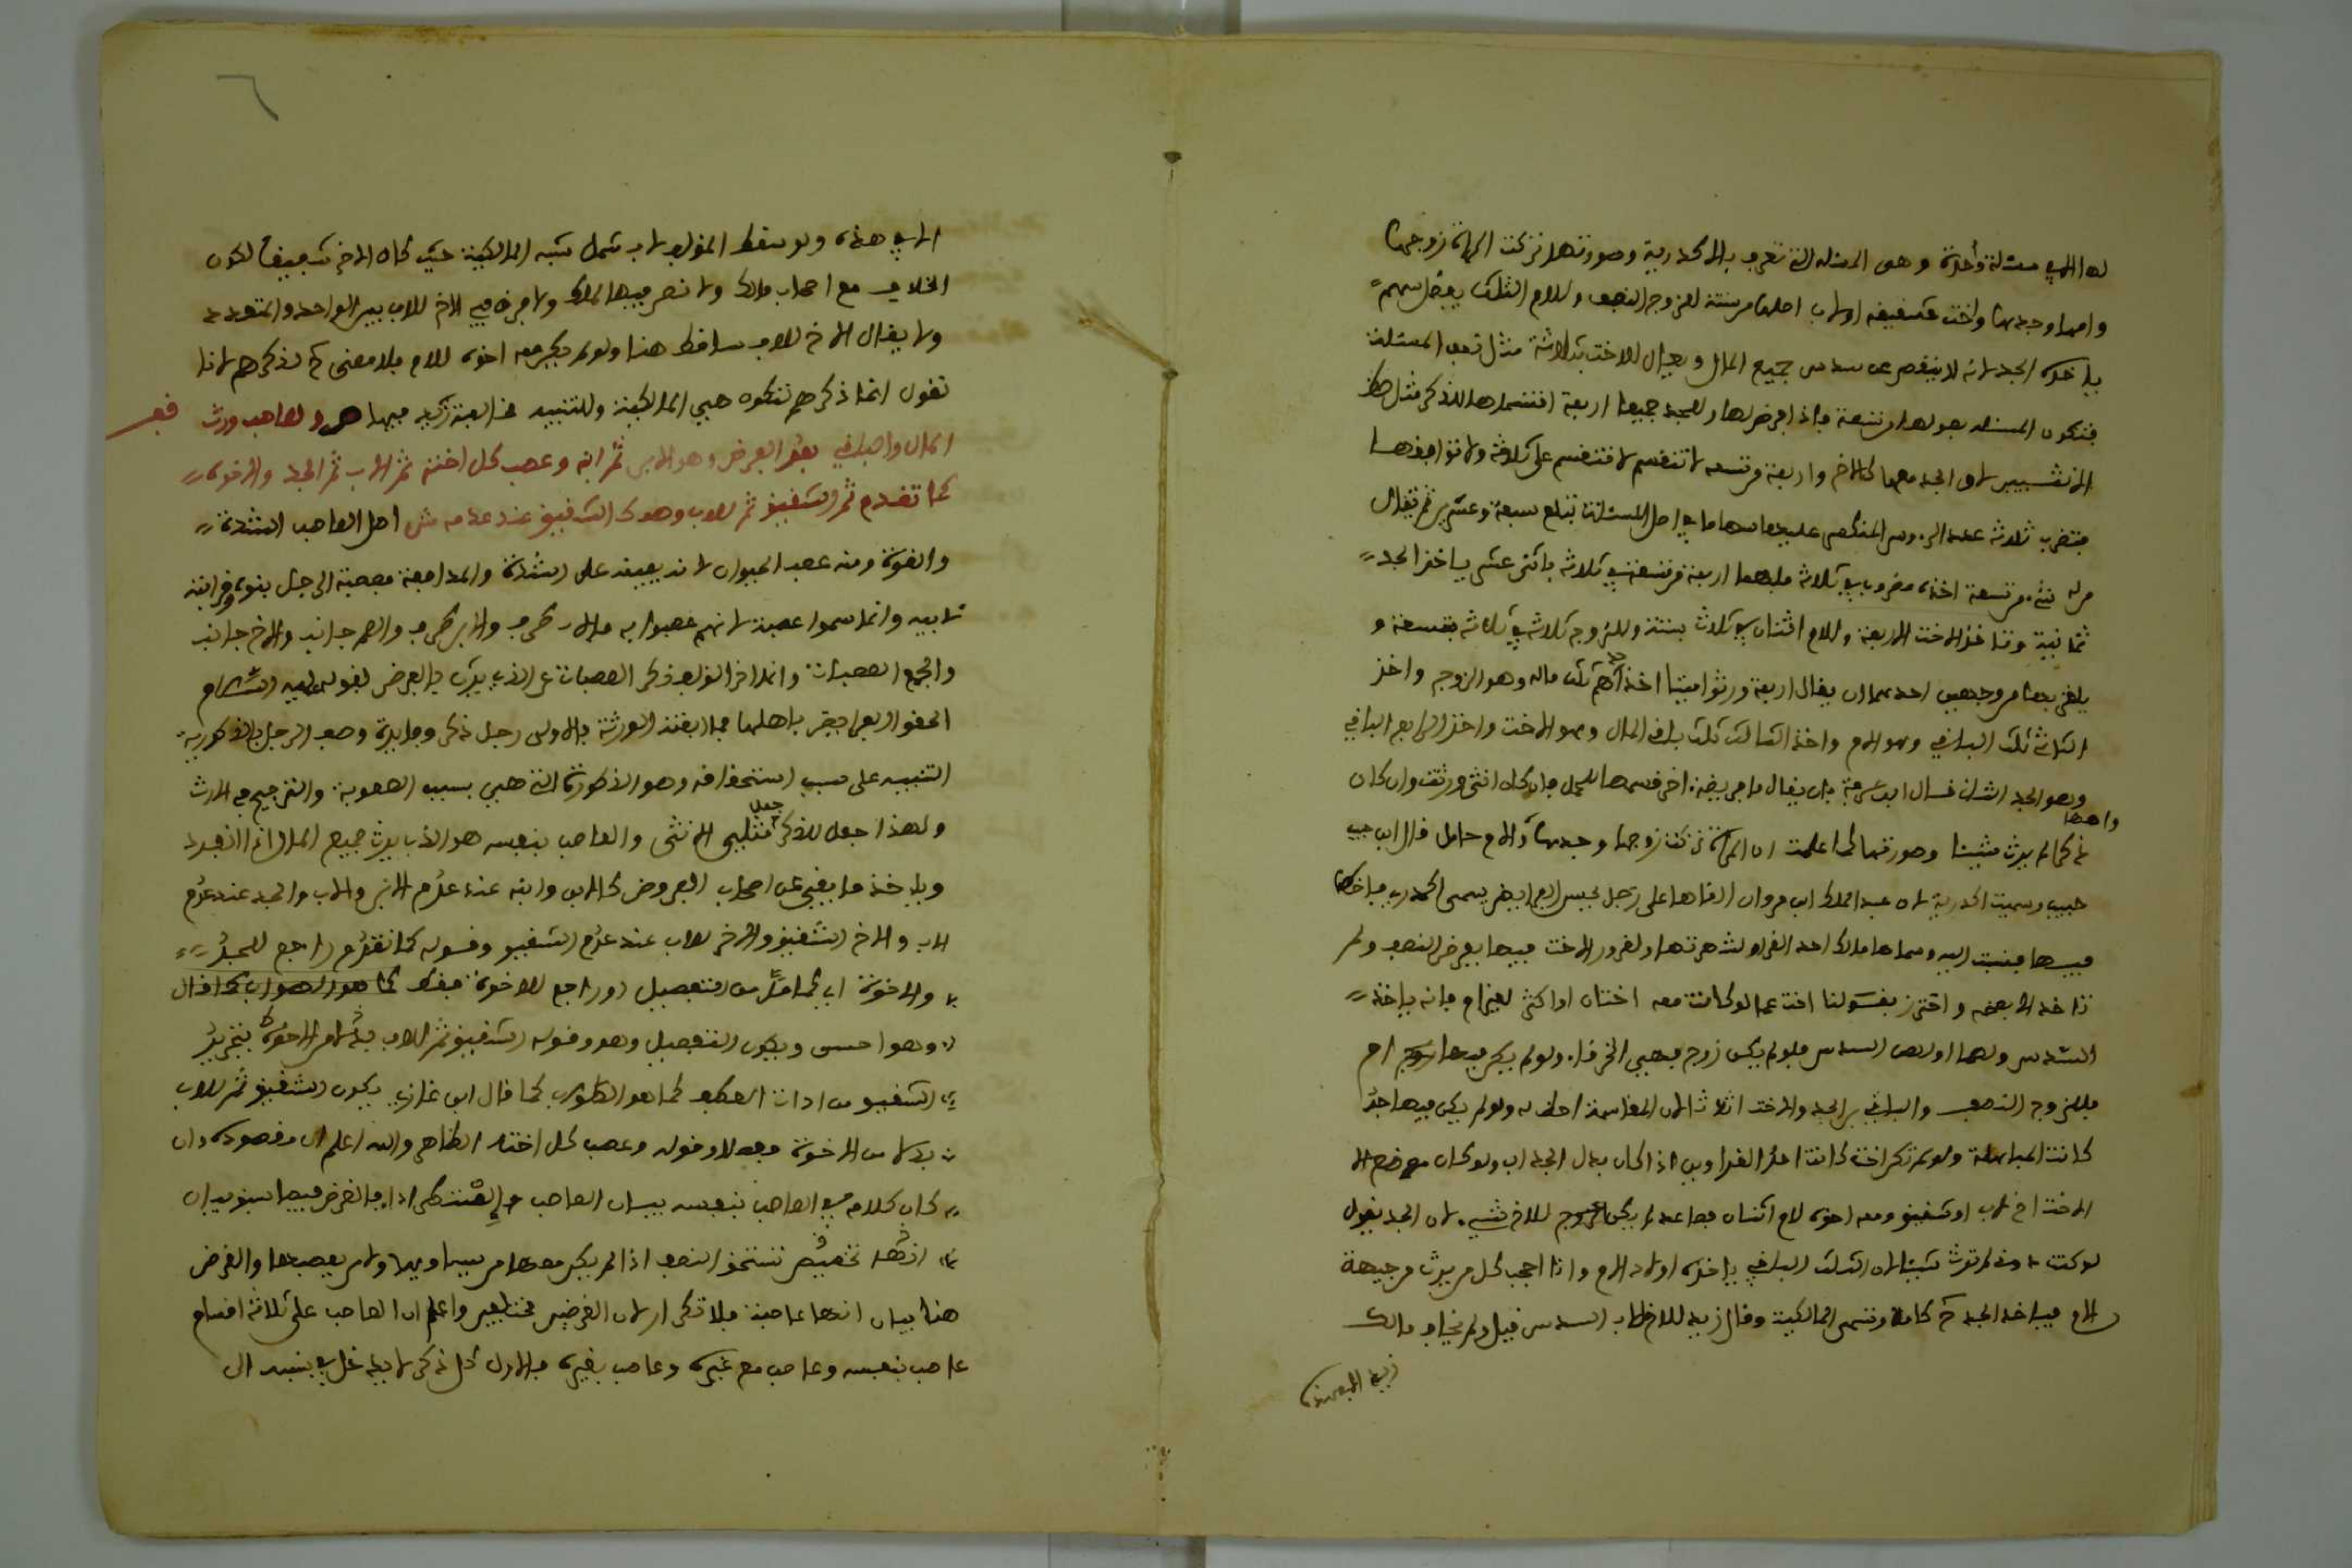 لها الا في مسئلة واحدة وهي المسئلة التي تعرف بالاكدرية وصورتها تركت امراة زوجها
وامها وجدها واخت شقيقة او لاب اصلها من ستة للزوج النصف وللام الثلث يفضل سهم
ياخذه الجد لانه لا ينقص عن سدس جميع المال ويعال للاخت بثلاثة مثل نصف المسئلة
فتكون المسئلة بعولها من تسعة فاذا فرض لها وللجد جميعا اربعة اقتسماها للذكر مثل حظ
الانثيين لان الجد معها كالاخ واربعة من تسعة لا تنقسم على ثلاثة ولا توافقها
فتضرب ثلاثة عدد الرءوس المنكسر عليها سهامها في اصل المسئلة تبلغ سبعة وعشرين ثم تقال
من له شيء من تسعة اخذه مضروبا في ثلاثة فلهما اربعة من تسعة في ثلاثة باثني عشر ياخذ الجد
ثمانية وتاخذ الاخت الاربعة وللام اثنان في ثلاثة بستة وللزوج ثلاثة في ثلاثة بتسعة و
يلغز بها من وجهين احدهما ان يقال اربعة ورثوا ميتا اخذ احدهم ثلث ماله وهو الزوج واخذ
الثاني ثلث الباقي وهو الام واخذ الثالث ثلث باقي المال وهو الاخت واخذ الرابع الباقي
وهو الجد الثاني قال ابن عرفة بان يقال ما فريضة اخر قسمها للحمل فان كان انثى ورثت وان كان
ذكرا لم يرث شيئا وصورتها كما علمت ان امراة تركت زوجها وجدها وامها والام حامل قال ابن حبيب
حبيب وسميت اكدرية لان عبد الملك ابن مروان القاها على رجل يحسن الفرائض يسمى اكدر فاخطا
فيها فنسبت اليه وسماها مالك احد الغراء لشهرتها ولغرور الاخت فيها بفرض النصف ولم
تاخذ الا بعضه واحترز بقولنا اخت عما لو كانت معه اختان او اكثر لغير ام فانه ياخذ
السدس ولهما او لهن السدس فلو لم يكن زوج فهي الخرقاء ولو لم يكن فيها ام
فللزوج النصف والباقي بين الجد والاخت اثلاثا لان المقاسمة احظى له ولو لم يكن فيها جد
كانت المباهلة ولو لم تكن اخت كانت احد الغراوين اذا كان بدل الجد اب ولو كان موضع الا
الاخت اخ لاب او شقيق ومعه اخوة لام اثنان فصاعدا لم يكن للاخ شيء لان الجد يقول
لو كنت دوني لم ترث شيئا لان الثلث الباقي ياخذه اولاد الام وانا احجب كل من يرث من جهة
الام فياخذ الجد كاملا وتسمى المالكية وقال زيد للاخ لاب السدس قيل ولم يخالف مالك
زيدا الا في هذه
الا في هذه ولو سقط المؤلف لاب شمل شبه المالكية حيث كان الاخ شقيقا لكون
الخلاف مع اصحاب مالك ولا نص فيها لمالك ولا فرق في الاخ للاب بين الواحد والمتعدد
ولا يقال الاخ للاب ساقط هنا ولو لم يكن معه اخوة للام فلا معنى لذكرهم لانا
نقول انما ذكرهم لتكون هي المالكية وللتنبيه مخالفة زيد فيها ص ولعاصب ورث
المال والباقي بعد الفرض وهو الابن ثم ابنه وعصب كل اخته ثم الاب ثم الجد والاخوة
كما تقدم ثم الشقيق ثم للاب وهو كالشقيق عند عدمه ش اصل العاصب الشدة
والقوة ومنه عصب الحيوان لانه يعينه على الشدة والمدافعة فعصبة الرجل بنوه وقرابته
لابيه وانما سموا عصبة لانهم عصبوا به فالاب طرف والابن طرف والعم جانب والاخ جانب
والجمع العصبات وانما اخر المؤلف ذكر العصبات عن الذي يرث بالفرض لقوله عليه السلام
الحقوا الفرائض باهلها فما ابقت الورثة فلاولى رجل ذكر وفائدة وصف الرجل بالذكورية
التنبيه على سبب استحقاقه وهو الذكورة التي هي سبب العصوبة والترجيح في الارث
ولهذا جعل للذكر مثلي الانثى والعاصب بنفسه هو الذي يرث جميع المال اذا انفرد
وياخذ ما بقي عن اصحاب الفروض كالابن وابنه عند عدم الابن والاب والجد عند عدم
الاب والاخ الشقيق والاخ للاب عند عدم الشقيق وقوله كما تقدم راجع للجد
والاخوة اي كما مر من التفصيل او راجع للاخوة فقط كما هو الصواب كما قال
وهو احسن ويكون التفصيل وهو وقوله الشقيق ثم للاب بدلا من الاخوة بتجريد
الشقيق من اداة العطف كما هو الصواب كما قال ابن غازي يكون الشقيق ثم للاب
بدلا من الاخوة وقوله وعصب كل اخته الظاهر والله اعلم ان مقصوده وان
كان كلامه في العاصب بنفسه بيان العاصب
انها تستحق النصف اذا لم يكن معها من يساويها ولا من يعصبها والغرض
هنا بيان انها عاصبة فلا تكرار لان الغرضين مختلفين واعلم ان العاصب على ثلاثة اقسام
عاصب بنفسه وعاصب مع غيره وعاصب بغيره فالاول كل ذكر لا يدخل في نسبه الى